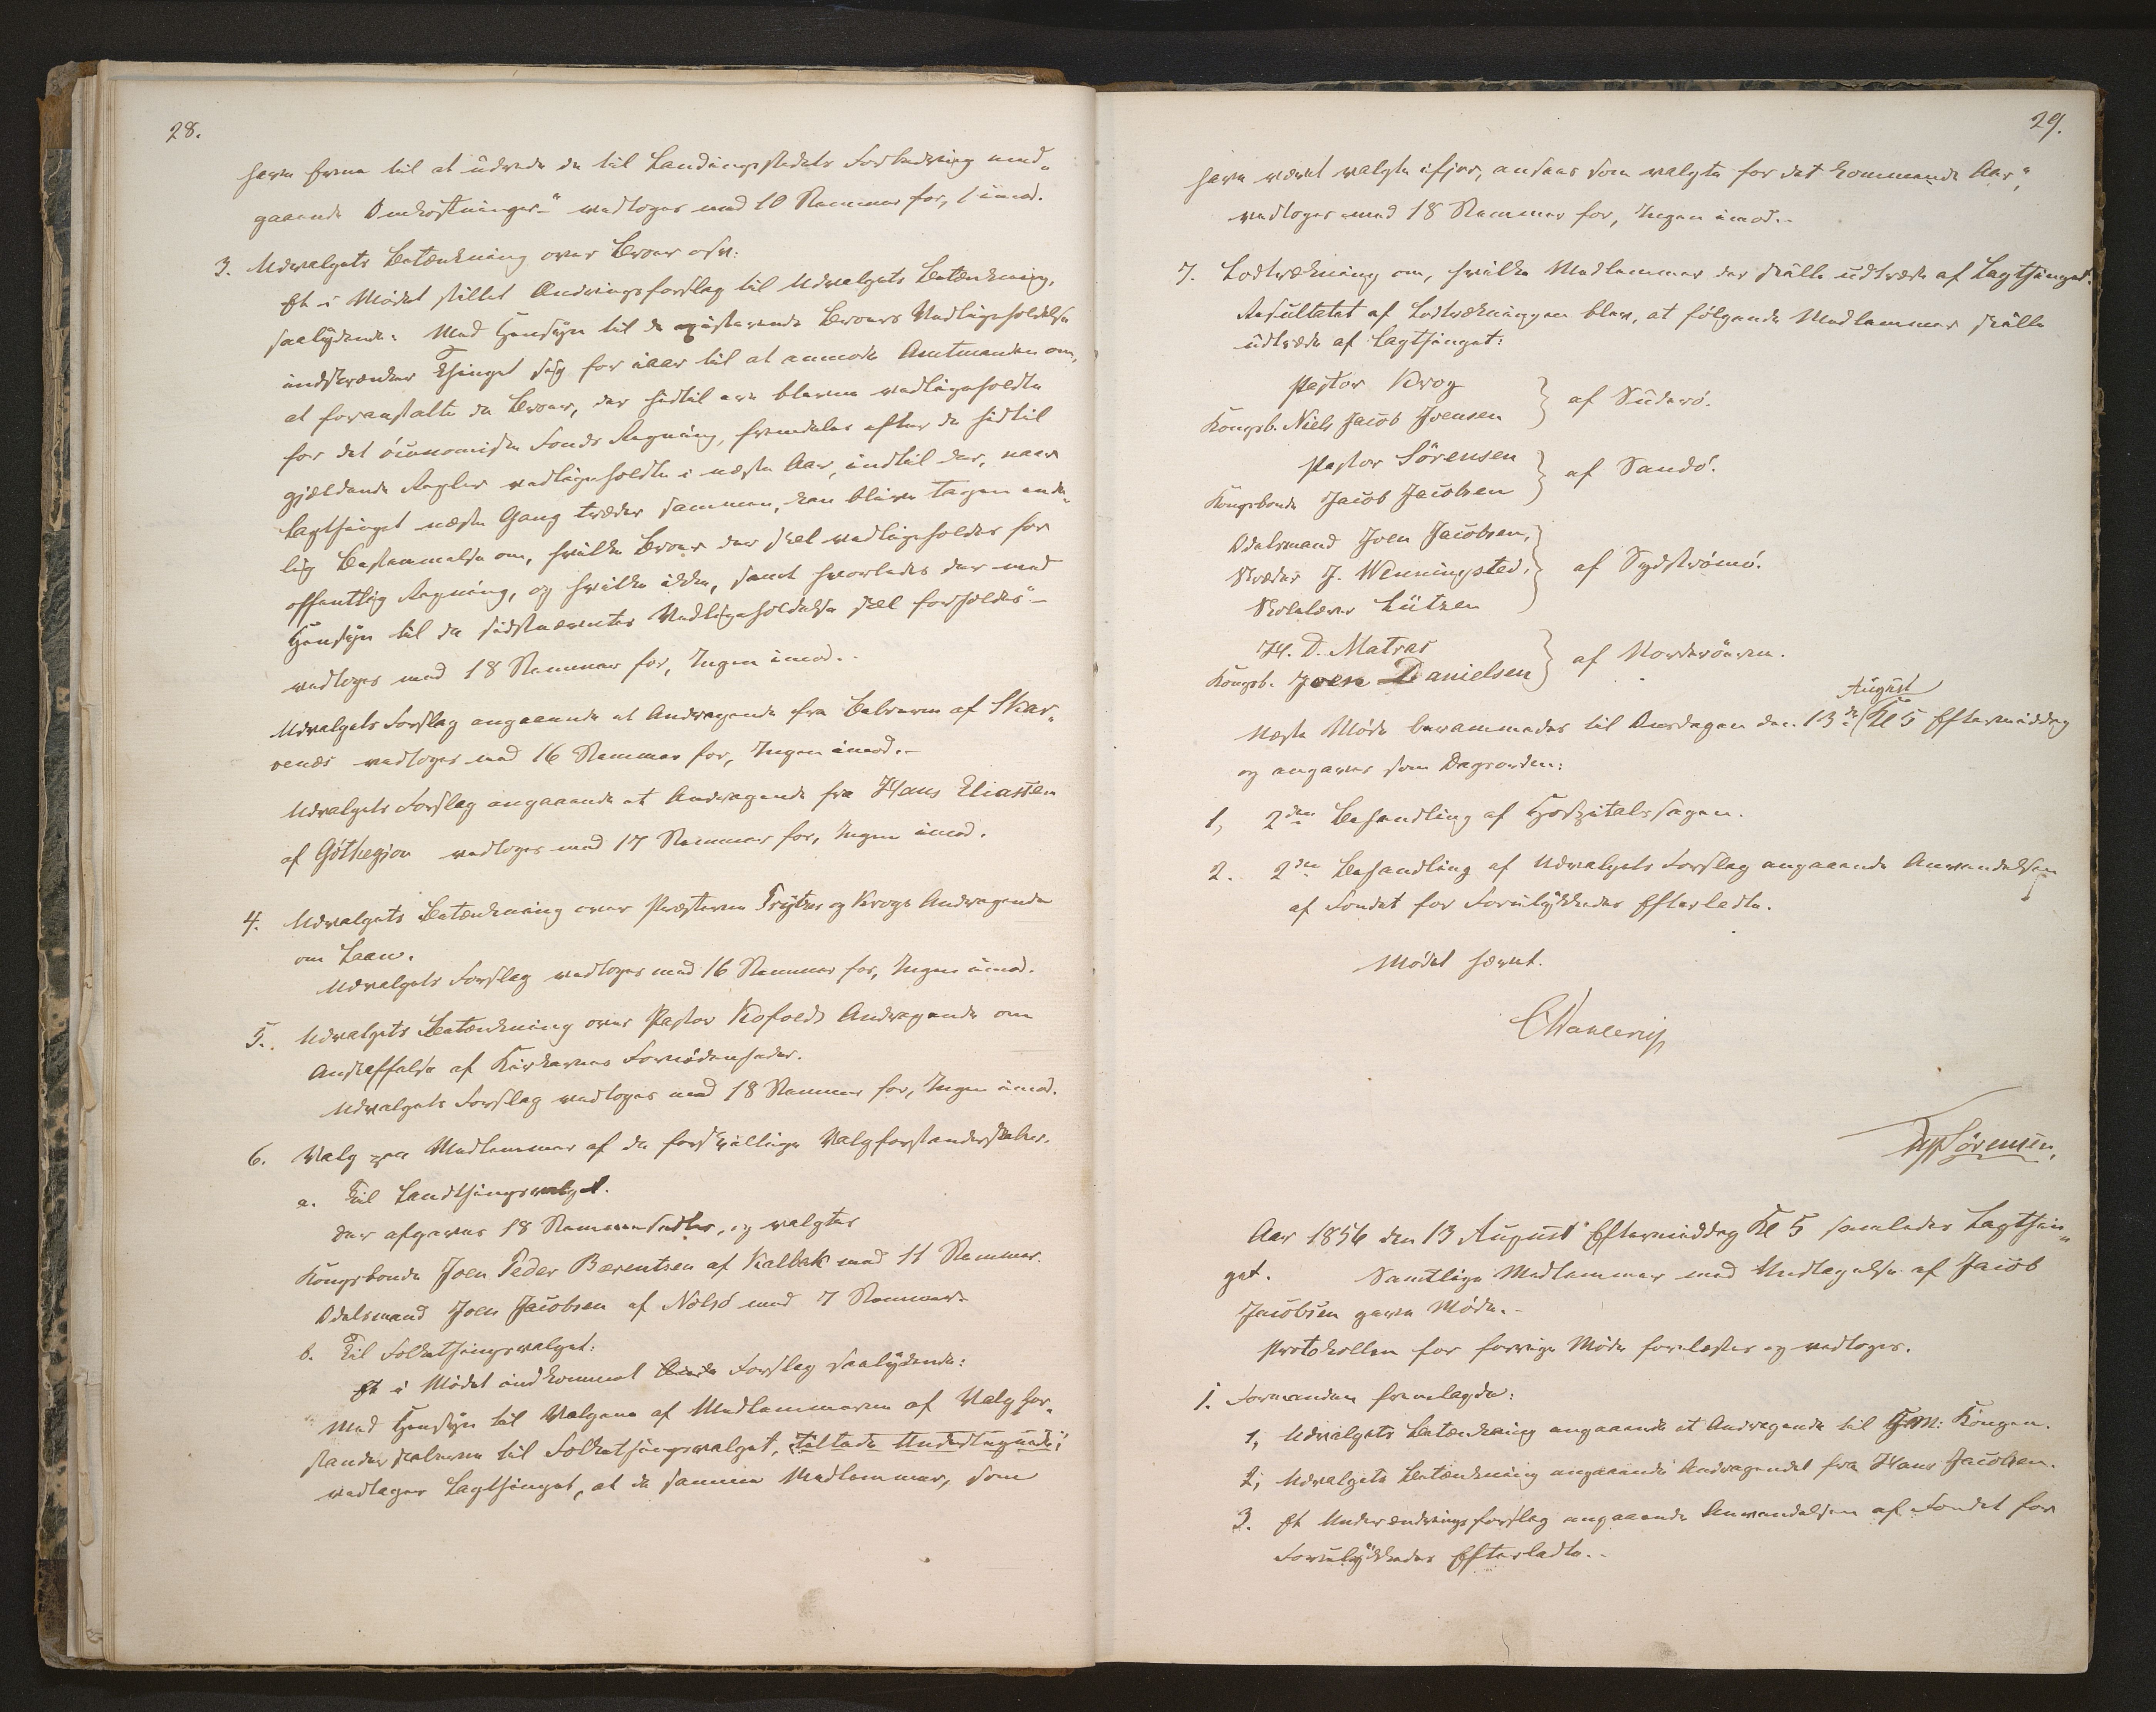 28.
have evne til at udrede de til Landingsstedets Forbedring med„
gaaende Omkostninger" vedtoges med 10 Stemmer for, 1 imod.
3. Udvalgets Betænkning over Broer osv:
Et i Mødet stillet Ændringsforslag til Udvalgets Betænkning,
saalydende: Med Hensyn til de existerende Broers Vedligeholdelse
indskrænker Thinget sig for iaar til at anmode Amtmanden om,
at foranstalte de Broer, der hidtil ere blevne vedligeholdte
for det öconomiske Fonds Regning, fremdeles efter de hidtil
gjældende Regler vedligeholdte i næste Aar, indtil der, naar
Lagthinget næste Gang træder sammen, kan blive tagen ende„
lig Bestemmelse om, hvilke Broer der skal vedligeholdes for
offentlig Regning, og hvilke ikke, samt hvorledes der med
Hensyn til de sidstnævntes Vedligeholdelse skal forholdes" –
vedtoges med 18 Stemmer for, Ingen imod. –
Udvalgets Forslag angaaende et Andragende fra Beboerne af Skar„
venæs vedtoges med 16 Stemmer for, Ingen imod. –
Udvalgets Forslag angaaende et Andragende fra Hans Eliassen
af Göthegjov vedtoges med 17 Stemmer for, Ingen imod.
4. Udvalgets Betænkning over Præsterne Trytzes og Krogs Andragende
om Laan.
Udvalgets Forslag vedtoges med 16 Stemmer for, Ingen imod.
5. Udvalgets Betænkning over Pastor Kofoeds Andragende om
Anskaffelse af Kirkernes Fornödenheder.
Udvalgets Forslag vedtoges med 18 Stemmer for, Ingen imod.
6. Valg paa Medlemmer af de forskjellige Valgforstanderskaber.
a. Til Landsthingsvalget.
Der afgaves 18 Stemmesedler, og valgtes
Kongsbonde Joen Peder Bærentsen af Kalbak med 11 Stemmer.
Odelsmand Joen Jacobsen af Nolsö med 7 Stemmer.
b. Til Folkethingsvalget:
Et i Mødet indkommet Forslag saalydende:
Med Hensyn til Valgene af Medlemmerne af Valgfor„
standerskaberne til Folkethingsvalget,
vedtager Lagthinget, at de samme Medlemmer, som
29.
have været valgte ifjor, ansees som valgte for det kommende Aar",
vedtoges med 18 Stemmer for, Ingen imod. –
7. Lodtrækning om, hvilke Medlemmer der skulle udtræde af Lagthinget.
Resultatet af Lodtrækningen blev, at følgende Medlemmer skulle
udtræde af Lagthinget:
Pastor Krog
Kongsb. Niels Jacob Joensen } af Suderö.
Pastor Sörensen
Kongsbonde Jacob Jacobsen } af Sandö.
Odelsmand Joen Jacobsen,
Skræder J. Wenningsted, } af Sydströmö.
Skolelærer Lützen
H. D. Matras
Kongsb. Joen Danielsen } af Norderöerne.
August
Næste Møde berammedes til Onsdagen den 13de Kl 5 Eftermiddag
og angaves som Dagsorden:
1, 2den Behandling af Hospitalssagen.
2. 2den Behandling af Udvalgets Forslag angaaende Anvendelsen
af Fondet for Forulykkedes Efterladte.
Mödet hævet.
CDahlerup
Sörensen.
Aar 1856 den 13 August Eftermiddag Kl 5 samledes Lagthin„
get. Samtlige Medlemmer med Undtagelse af Jacob
Jacobsen gave Møde. –
Protokollen for forrige Møde forelæstes og vedtoges.
1. Formanden fremlagde:
1, Udvalgets Betænkning angaaende et Andragende til H: M: Kongen.
2, Udvalgets Betænkning angaaende Andragendet fra Hans Jacobsen.
3. Et Underændringsforslag angaaende Anvendelsen af Fondet for
Forulykkedes Efterladte. –